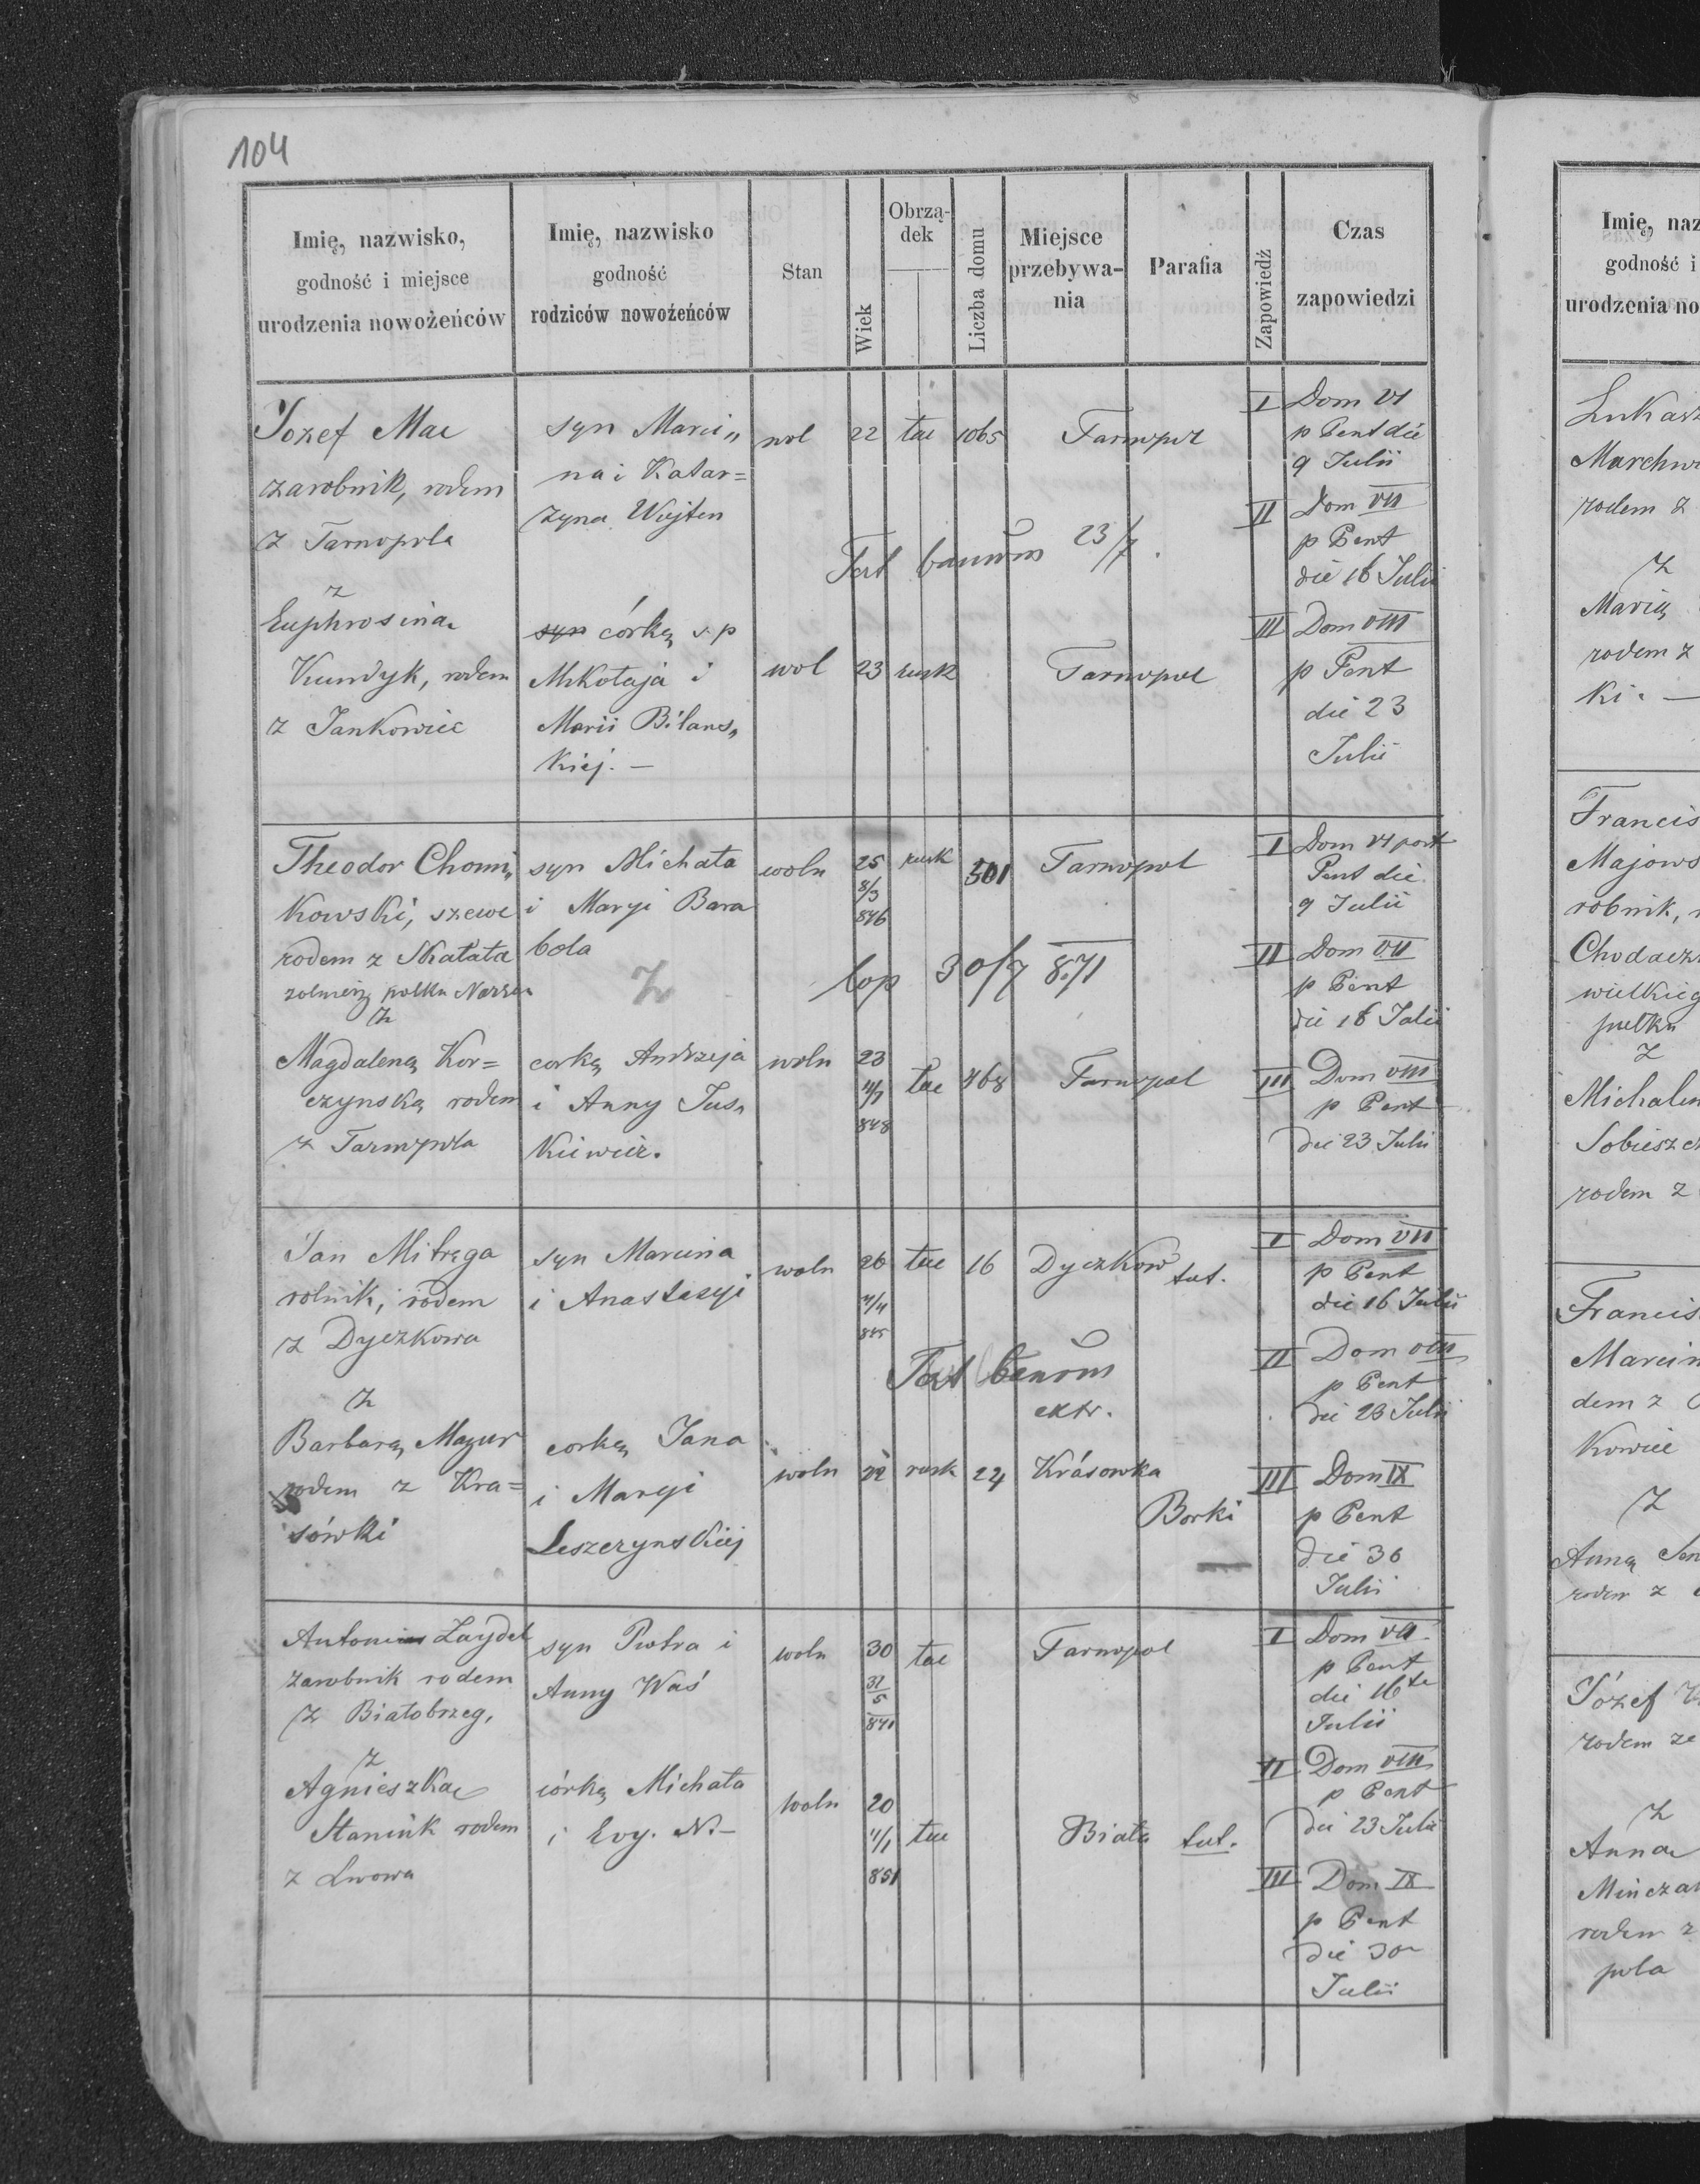 104
Imię, nazwisko,
godność i miejsce
urodzenia nowożeńców
Imię, nazwisko
godność
rodziców nowożeńców
Stan
Wiek
Obrzą-
dek
Liczba domu
Miejsce
przebywa-
nia
Parafia
Zapowiedź
Czas
zapowiedzi
Jozef Mac
zarobnik, rodem
z Tarnopola
syn Marci„
na i Katar=
zyna Wojten
wol 22 łac 1065 Tarnopol
I Dom VI
p Pent die
9 Julii
II Dom VII
p Pent
die 16 Julii
23/7
z
Euphrosina
Kundyk, rodem
z Jankowiec
syn córką s. p
Mikołaja i
Marii Bilans„
kiej. —
wol 23 rusk Tarnopol
III Dom VIII
p Pent
die 23
Julii
Theodor Chomi„
kowski, szewc
rodem z Skałata
syn Michała
i Maryi Bara
bola
woln 25 8/3 846 rusk 501 Tarnopol
cop 30/7 871
I Dom VI post
Pent die
9 Julii
II Dom VII
p Pent
die 16 Julii
z
Magdaleną Kor=
czynską rodem
z Tarnopola
corką Andrzeja
i Anny Jus„
kiewicz.
woln 23 848 łac 468 Tarnopol
III Dom VIII
p Pent
die 23 Julii
Jan Mitręga
rolnik, rodem
z Dyczkowa
syn Marcina
i Anastazyi
woln 26 845 łac 16 Dyczkow tut.
I Dom VII
p Pent
die 16 Julii
II Dom VIII
p Pent
die 23 Julii
extr.
z
Barbarą Mazur
rodem z Kra=
sówki
corką Jana
i Maryi
Leszczynskiej
woln 22 rusk 24 Krásowka
Borki
III Dom IX
p Pent
die 30
Julii
Antonius Zaydel
zarobnik rodem
z Białobrzeg,
syn Piotra i
Anny Waś
woln 30 31/5 841 łac Tarnopol
I Dom VII
p Pent
die 16te
Julii
II Dom VIII
p Pent
die 23 Julii
z
Agnieszka
Staniuk rodem
z Lwowa
córką Michała
i Evy. N. –
woln 20 851 łac Biała tut.
III Dom IX
p Pent
die 30
Julii
Imię, naz
godność i
urodzenia no
Łukasz
rodem z
z
Marią
rodem z
ki. —
Francis
Majows
robnik,
wielkieg
z
Michalin
Sobieszcz
rodem z
Francis
Marcin
dem z
kowiec
z
Anną
rodem z
Józef
rodem ze
z
Anna
Minczak
rodem z
pola